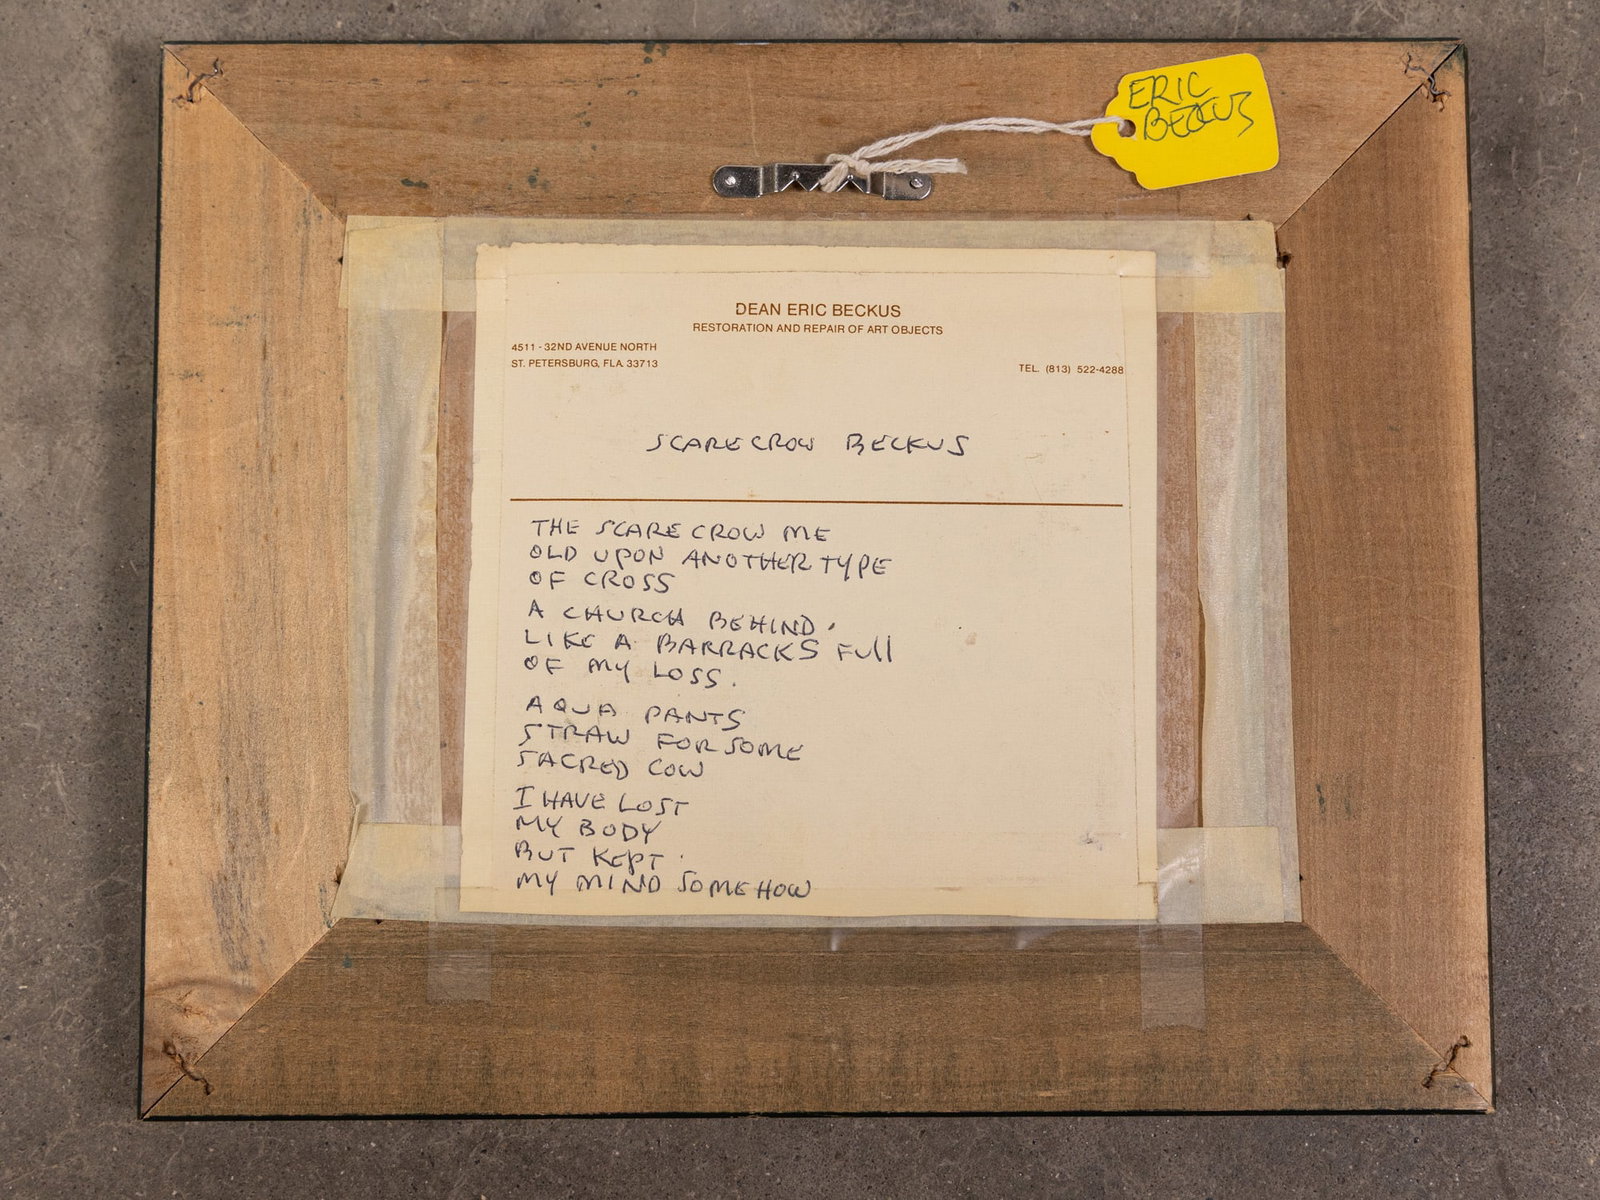 ERIC
BECKUS
DEAN ERIC BECKUS
RESTORATION AND REPAIR OF ART OBJECTS
4511 - 32ND AVENUE NORTH
ST. PETERSBURG, FLA. 33713
TEL. (813) 522-4288
SCARECROW BECKUS
THE SCARECROW ME
OLD UPON ANOTHER TYPE
OF CROSS
A CHURCH BEHIND.
LIKE A BARRACKS FULL
OF MY LOSS.
AQUA PANTS
STRAW FOR SOME
SACRED COW
I HAVE LOST
MY BODY
BUT KEPT
MY MIND SOMEHOW